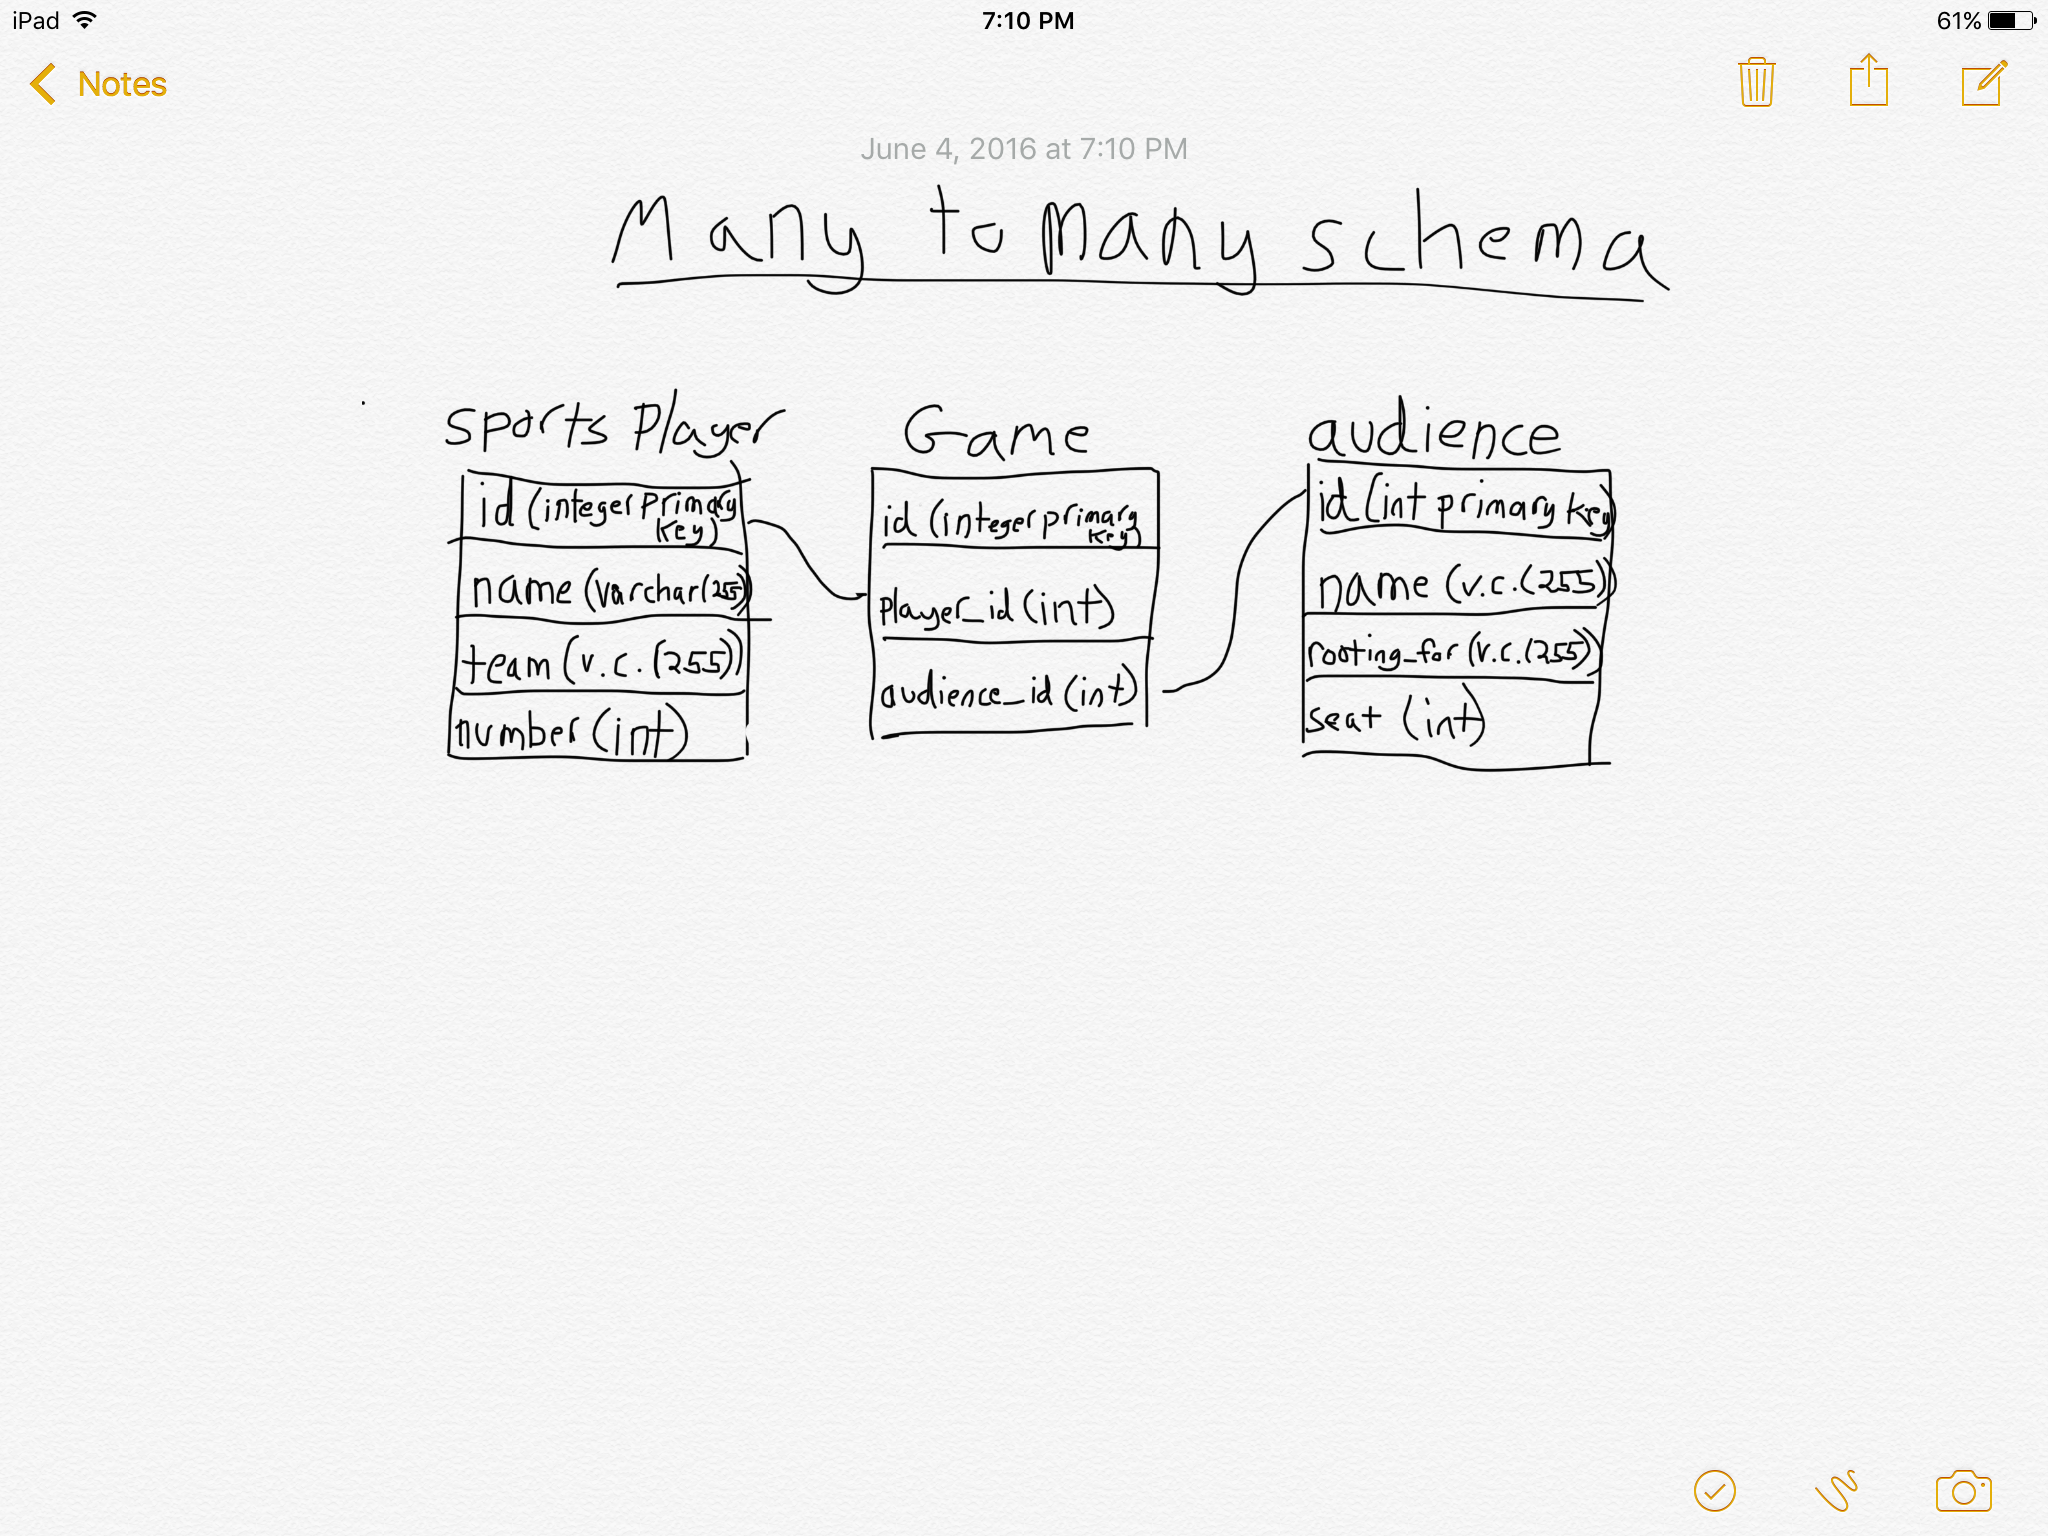 iPad 7:10 PM 61%
Notes
June 4, 2016 at 7:10 PM
Many to Many schema
sports Player
id (integer primary
key)
name (varchar(255))
team (v.c.(255))
number (int)
Game
id (integer primary
key)
player_id (int)
audience_id (int)
audience
id (int primary key)
name (v.c.(255))
rooting_for (v.c.(255))
seat (int)